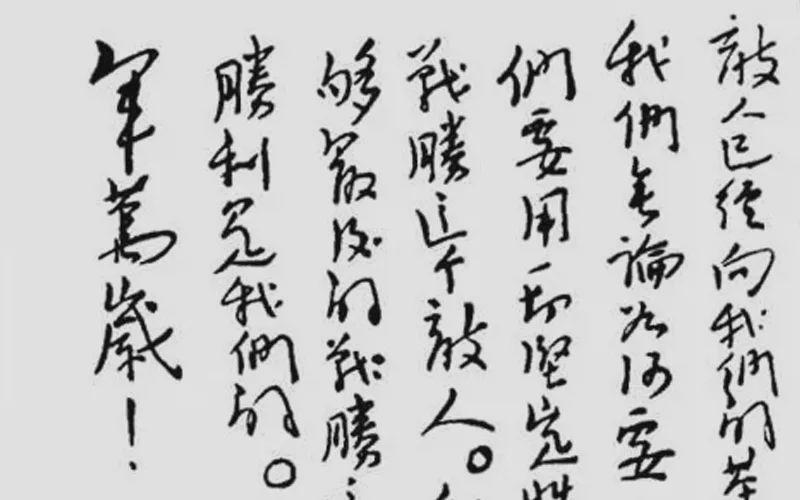 敵人已經向我們的
我們無論如何要
們要用一切堅
戰勝這个敵人。
够最後的戰勝
勝利是我們的。
軍萬歲！